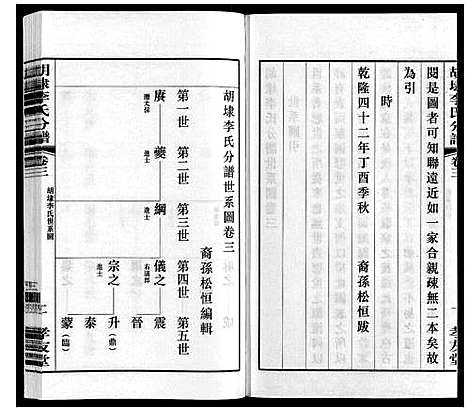 胡埭李氏分譜
卷三
一
孝友堂
閱是圖者可知聯遠近如一家合親疎無二本矣故
為引
時
乾隆四十二年丁酉季秋
裔孫松恒跋
胡埭李氏分譜世系圖卷三
裔孫松恒編輯
第一世
第二世
第三世
第四世
第五世
賡
夔
進士
綱
進士
儀之
右議郎
震
晉
宗之
進士
升(鼎)
泰
蒙(臨)
胡埭李氏分譜
卷三
胡埭李氏世系圖
孝友堂